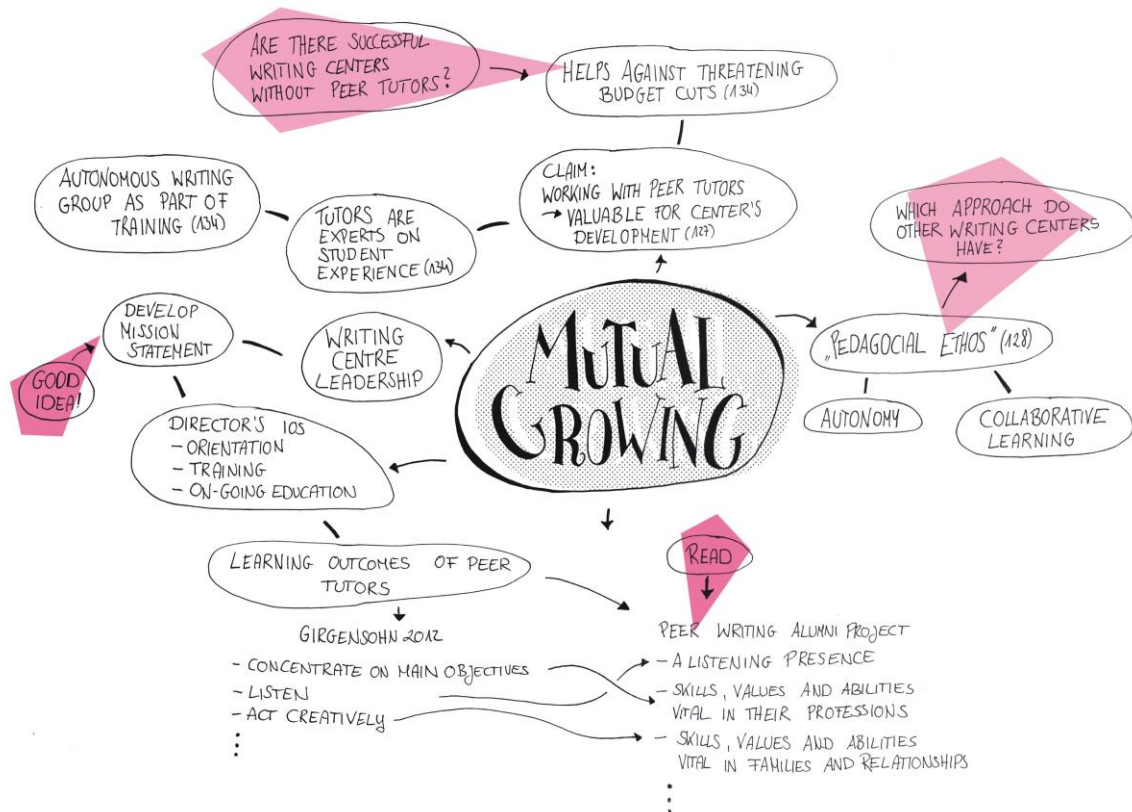 ARE THERE SUCCESSFUL
WRITING CENTERS
WITHOUT PEER TUTORS?
HELPS AGAINST THREATENING
BUDGET CUTS (134)
AUTONOMOUS WRITING
GROUP AS PART OF
TRAINING (134)
TUTORS ARE
EXPERTS ON
STUDENT
EXPERIENCE (134)
CLAIM:
WORKING WITH PEER TUTORS
→ VALUABLE FOR CENTER'S
DEVELOPMENT (127)
WHICH APPROACH DO
OTHER WRITING CENTERS
HAVE?
DEVELOP
MISSION
STATEMENT
GOOD
IDEA!
WRITING
CENTRE
LEADERSHIP
MUTUAL
GROWING
„PEDAGOCIAL ETHOS" (128)
AUTONOMY
COLLABORATIVE
LEARNING
DIRECTOR'S IOS
- ORIENTATION
- TRAINING
- ON-GOING EDUCATION
LEARNING OUTCOMES OF PEER
TUTORS
READ
GIRGENSOHN 2012
- CONCENTRATE ON MAIN OBJECTIVES
- LISTEN
- ACT CREATIVELY
PEER WRITING ALUMNI PROJECT
- A LISTENING PRESENCE
- SKILLS, VALUES AND ABILITIES
VITAL IN THEIR PROFESSIONS
- SKILLS, VALUES AND ABILITIES
VITAL IN FAMILIES AND RELATIONSHIPS